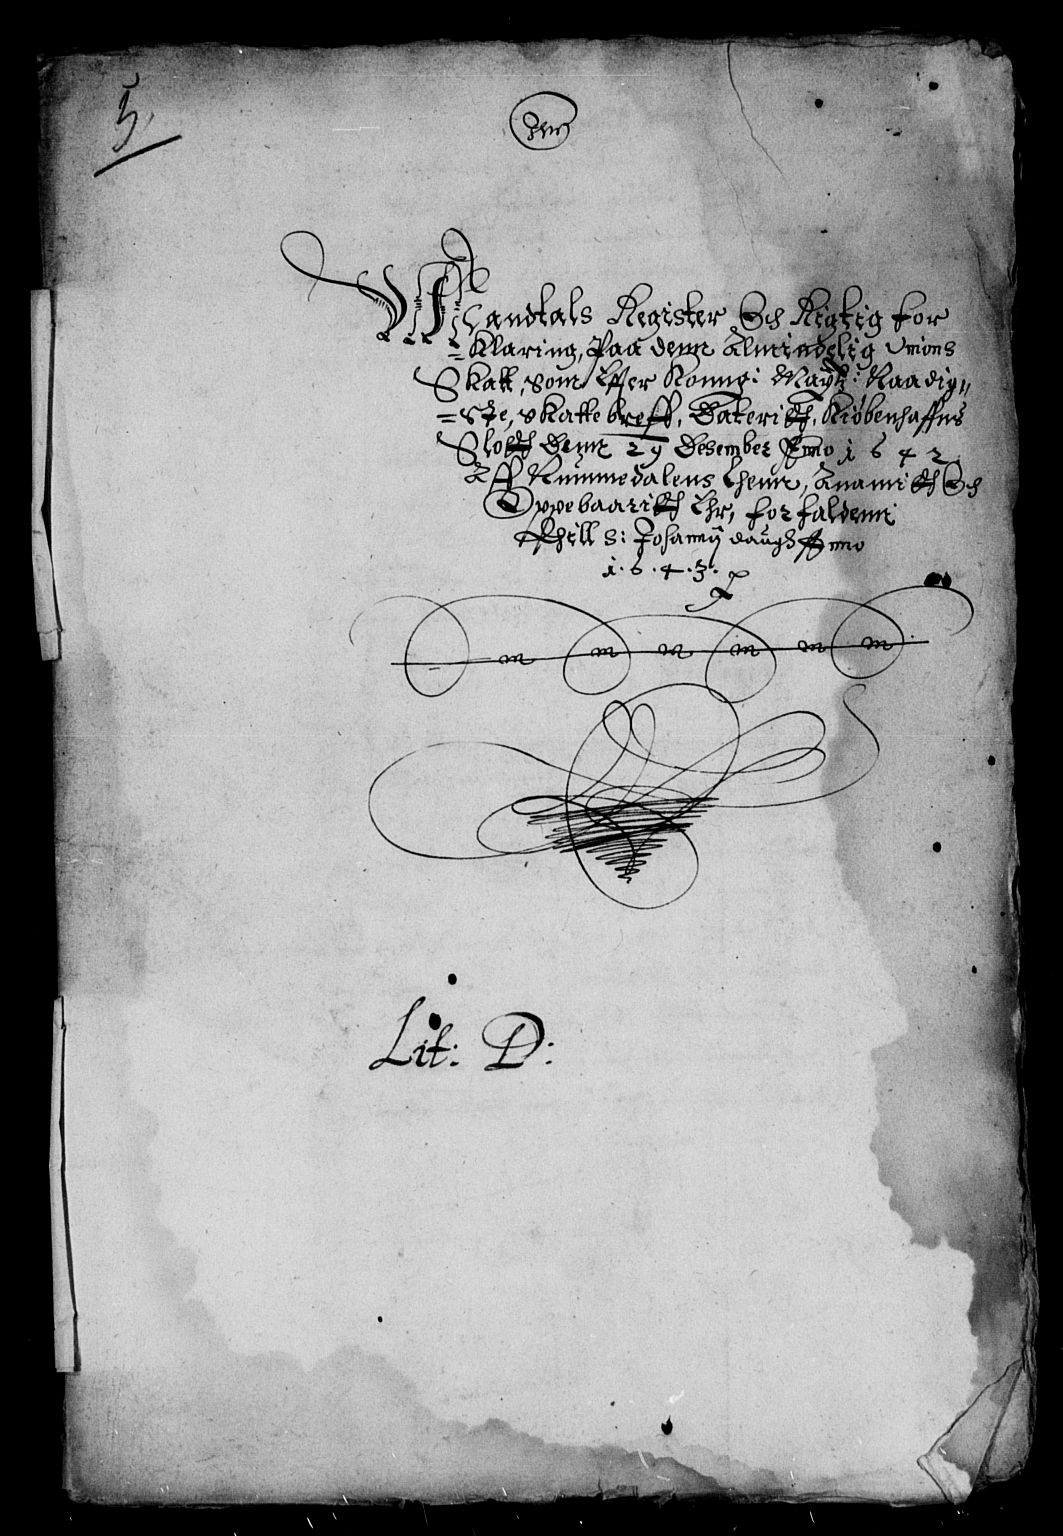 5.
Mandtals Register Och Rigtig for
=Klaring, Paa denn Almindelig Unions
Skatt, som Effter Konng: Mayt: Naadig„
=ste, skattebreff, Dateritt, Kiøbenhaffns
Slott Denn 29 Desember Anno 1642.
Aff Nummedalens Lhenn, Anamitt Och
Oppebaaritt Ehr, forfaldenn
Thill S: Johannij daugh Anno
1.6.4.3.
Lit: D: